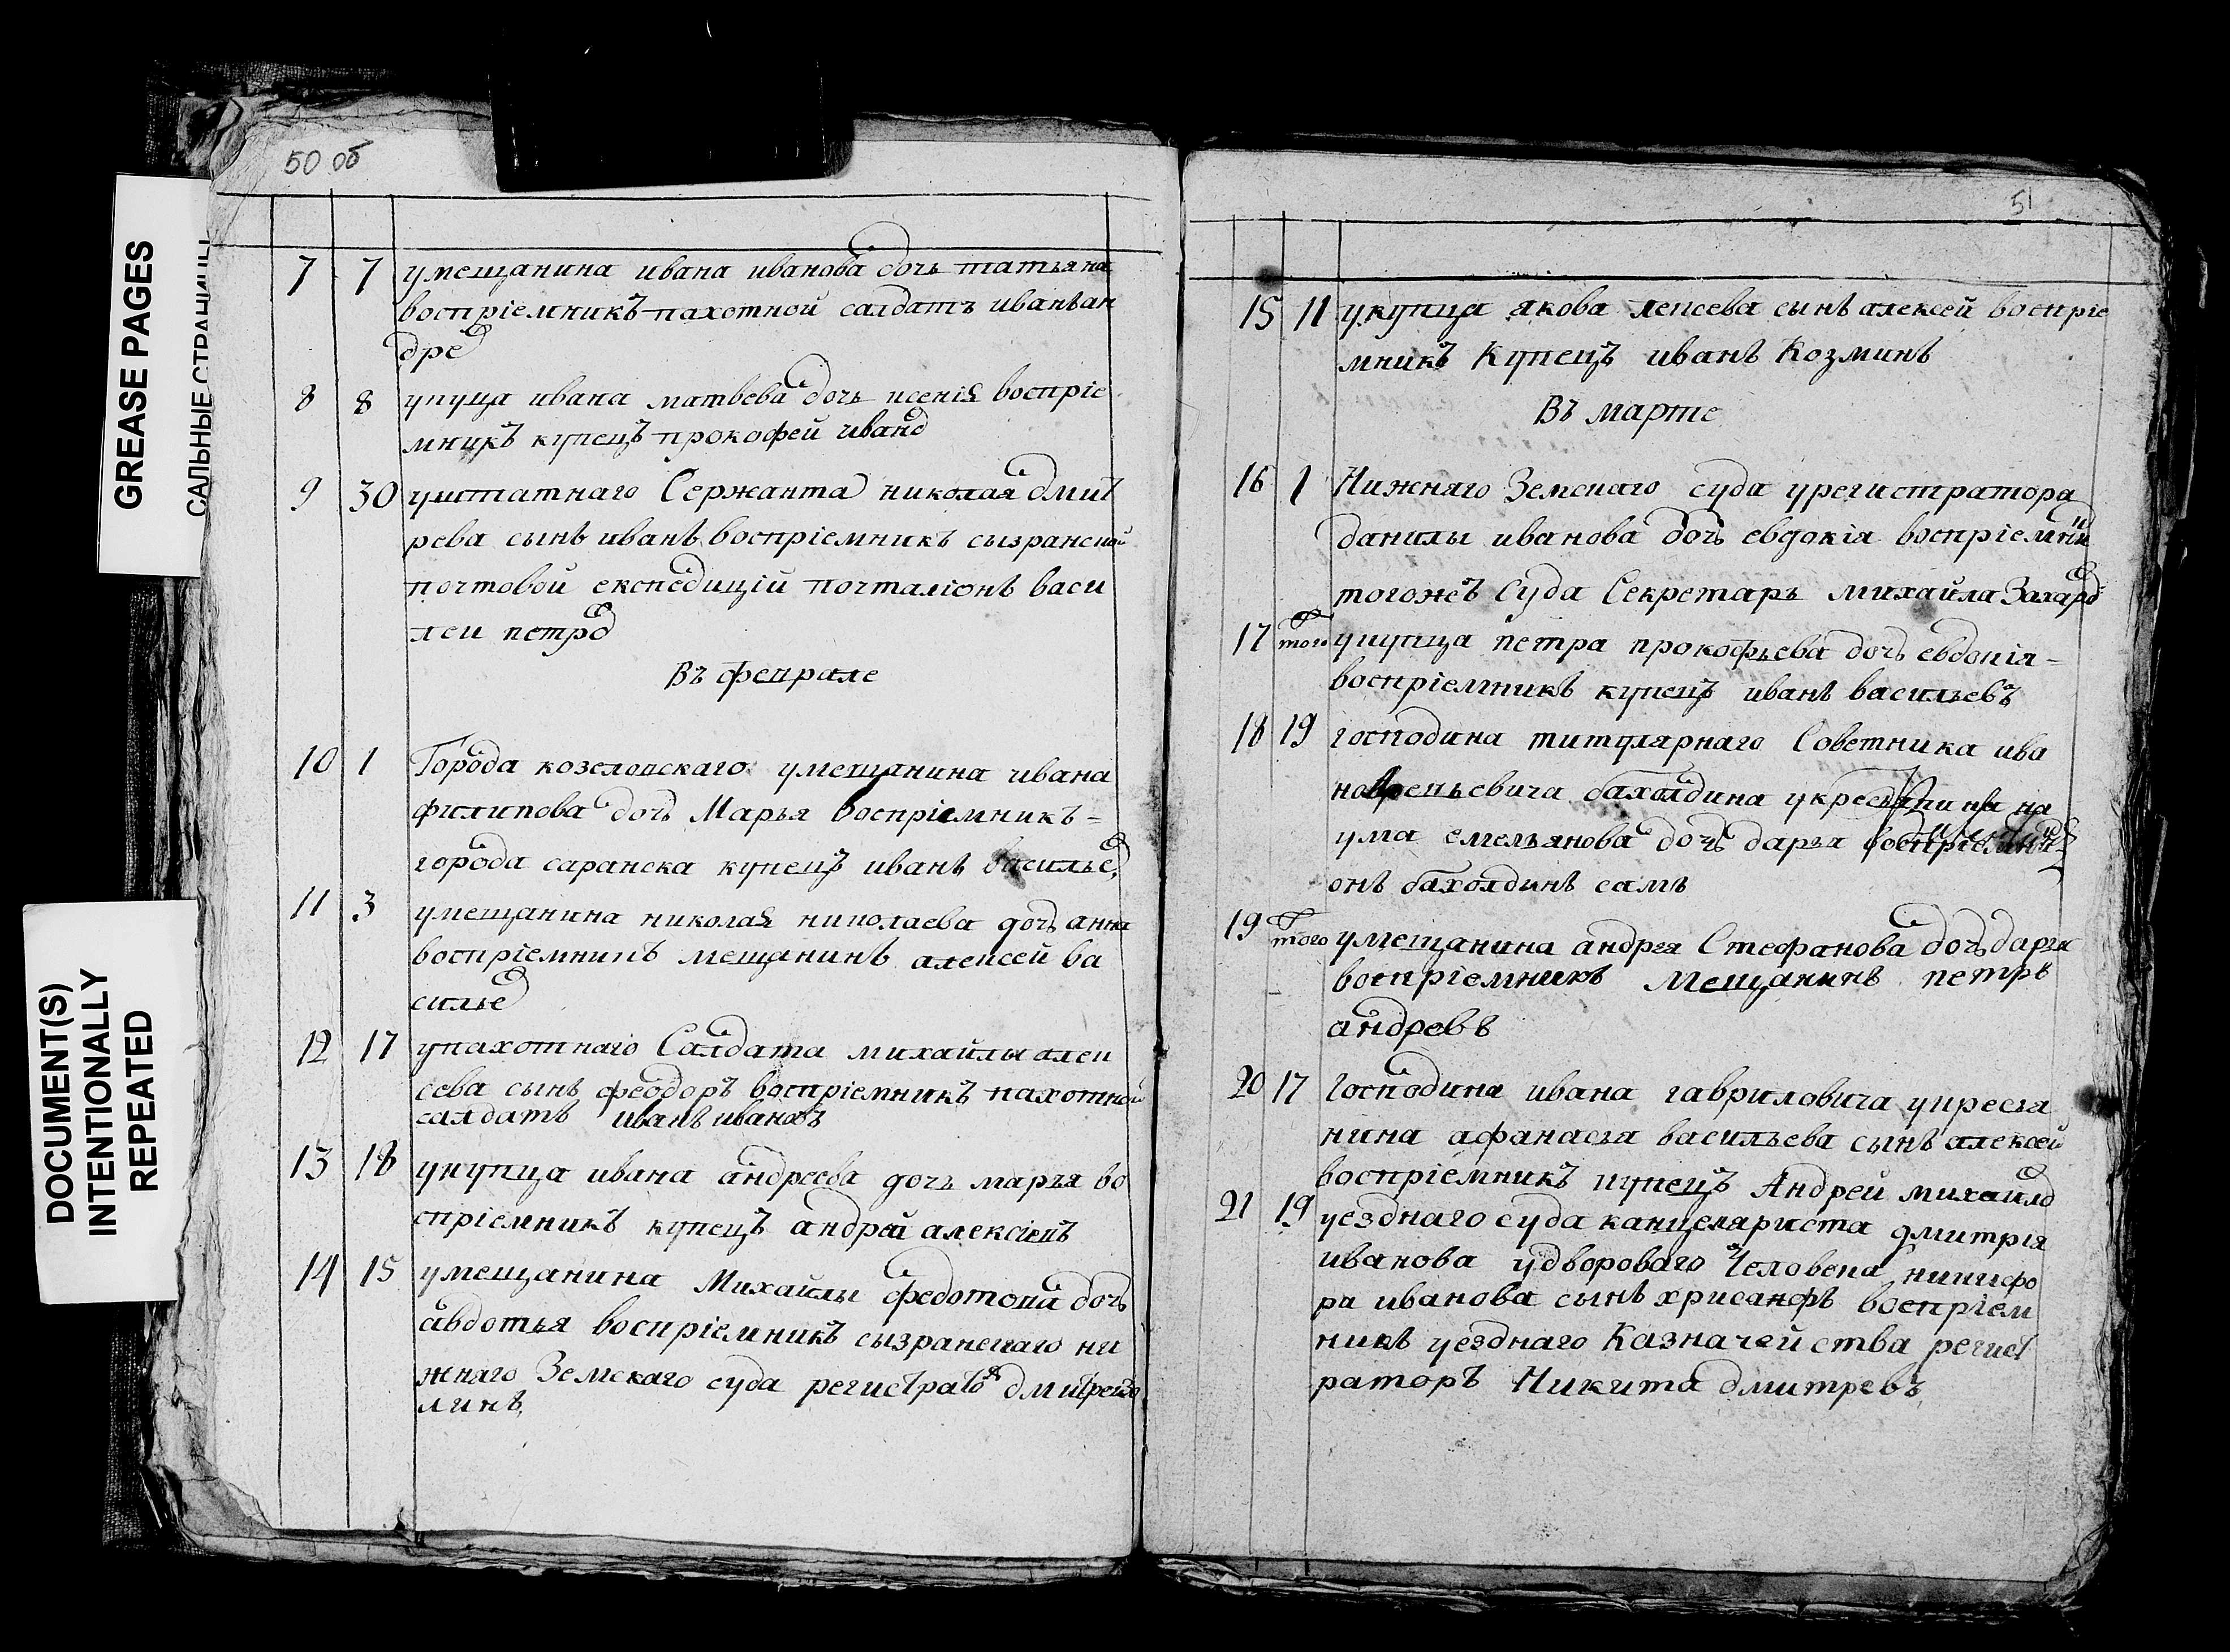 50 об
7 7 умещанина ивана иванова дочь татьяна
воспріемникъ пахотной салдатъ иванъ ан
дрее
8 8 укупца ивана матвева дочь ксенія воспріе
мникъ купецъ прокофей ивано
9 30 уштатнаго Сержанта николая дмит
рева сынъ иванъ воспріемникъ сызранской
почтовой експедиціи почталіонъ васи
леи петро
Въ феврале
10 1 Города козеловскаго умещанина ивана
филипова дочь Марья воспріемникъ -
города саранска купецъ иванъ василье
11 3 умещанина николая николаева дочь анна
воспріемникъ мещанинъ алексей ва
силье
12 17 упахотнаго Салдата михайлы алек
сева сынъ феодоръ воспріемникъ пахотной
салдатъ иванъ ивановъ
13 18 укупца ивана андреева дочь марья во
спріемникъ купецъ андрей алексіевъ
14 15 умещанина Михайлы федотова дочь
авдотья воспріемникъ сызранскаго ни
жняго Земскаго суда регистраторъ
линъ
51
15 11 укупца якова лексева сынъ алексей воспріе
мникъ Купецъ иванъ Козминъ
Въ марте
16 1 Нижняго Земскаго суда урегистратора
данилы иванова дочь евдокія воспріемни
тогожъ Суда Секретарь михайла Захаро
17 того укупца петра прокофьева дочь евдокія -
воспріемникъ купецъ иванъ васильевъ
18 19 господина титулярнаго Советника ива
на бахолдина укрестянина на
ума емельянова дочь дарья воспріемни
онъ бахолдинъ самъ
19 того умещанина андрея Стефанова дочь дарья
воспріемникъ Мещанинъ петръ
андревъ
20 17 Господина ивана гавриловича укрестя
нина афанасья васильева сынъ алексей
воспріемникъ купецъ Андрей михаило
21 19 уезднаго суда канцеляриста дмитрія
иванова удвороваго Человека никифо
ра иванова сынъ хрисанфъ воспріем
никъ уезднаго Казначейства регист
раторъ Никита дмитревъ
GREASE PAGES
САЛЬНЫЕ СТРАНИЦЫ
DOCUMENT(S)
INTENTIONALLY
REPEATED